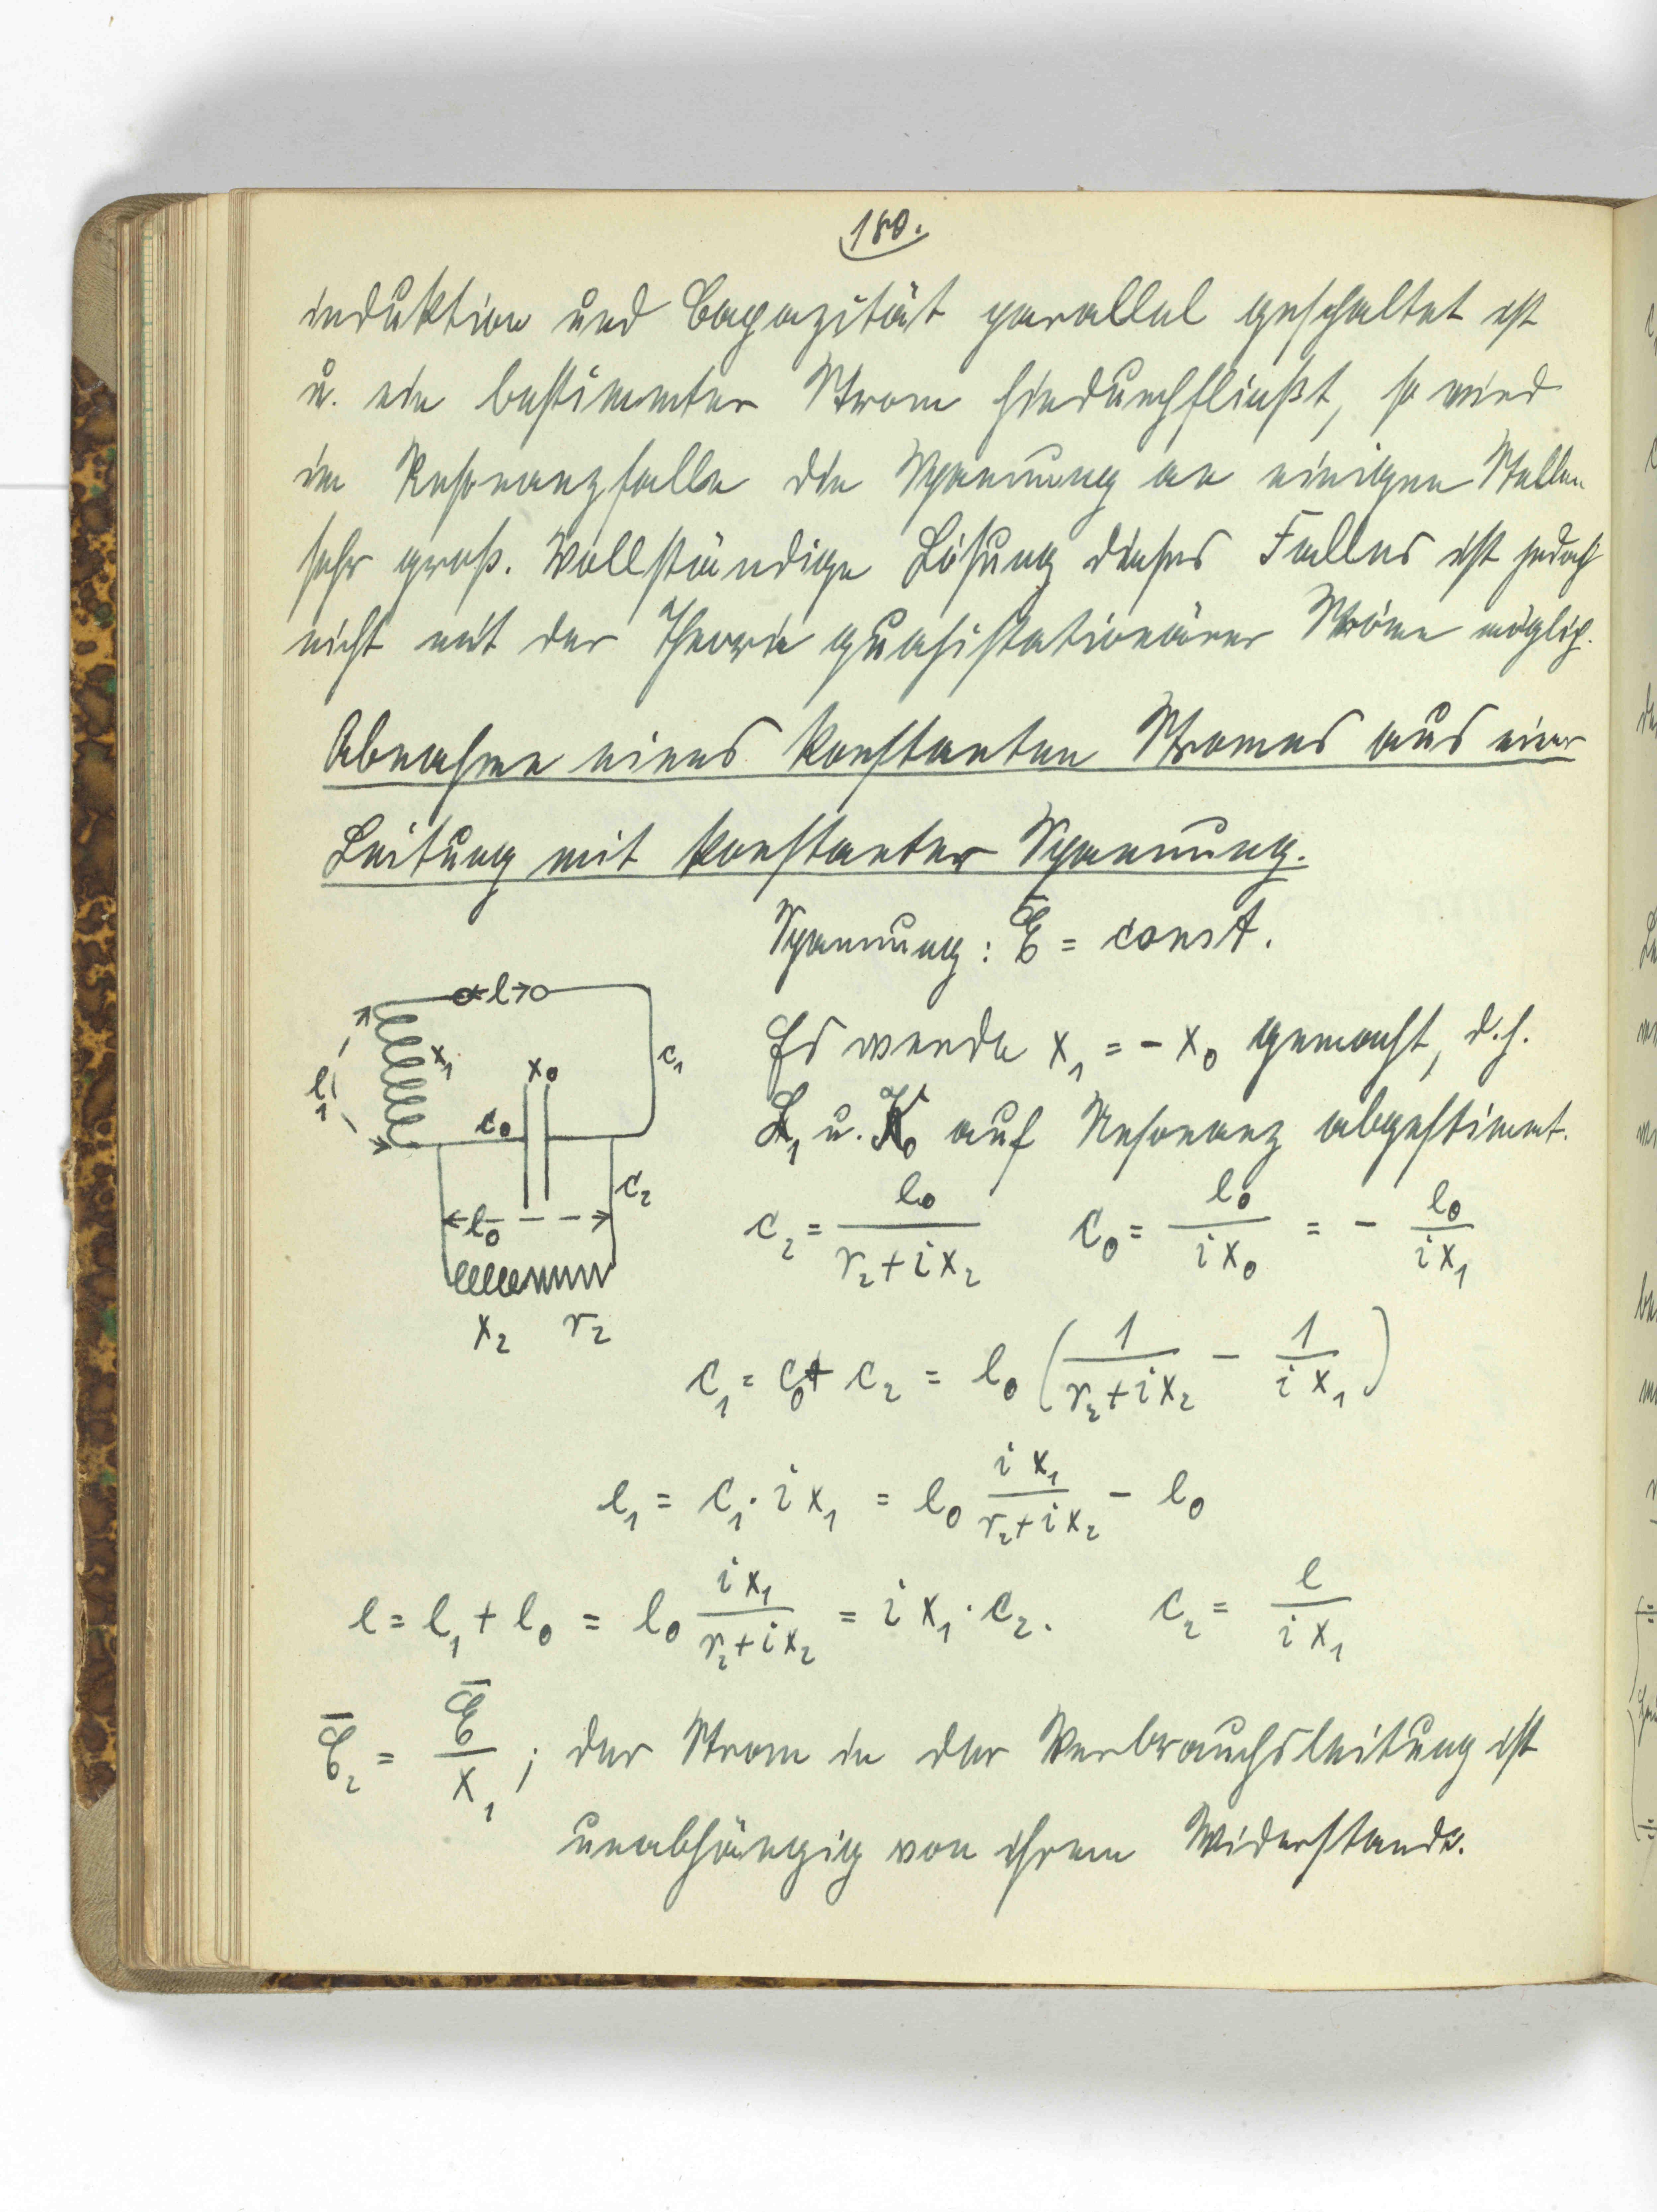 180.
induktion und Capazität parallel geschaltet ist
u. ein bestimmter Strom hindurchfließt, so wird
im Resonanzfalle die Spannung an einigen Stellen
sehr groß. Vollständige Lösung dieses Falles ist jedoch
nicht mit der Theorie quasistationärer Ströme möglich.
Abnahme eines konstanten Stromes aus einer
Leitung mit konstanter Spannung.
Spannung: Ē = const.
e
x₁
e₁
c₁
x₀
c₀
c₂
e₀
x₂ r₂
Es werde x₁ = - x₀ gemacht, d.h.
L₁ u. K₀ auf Resonanz abgestimmt.
c₂ = e₀ / (r₂ + i x₂) c₀ = e₀ / (i x₀) = - e₀ / (i x₁)
c₁ = c₀ + c₂ = e₀ (1 / (r₂ + i x₂) - 1 / (i x₁))
e₁ = c₁ · i x₁ = e₀ i x₁ / (r₂ + i x₂) - e₀
e = e₁ + e₀ = e₀ i x₁ / (r₂ + i x₂) = i x₁ · c₂. c₂ = e / (i x₁)
C̄₂ = Ē / x₁ ; der Strom in der Verbrauchsleitung ist
unabhängig von ihrem Widerstande.